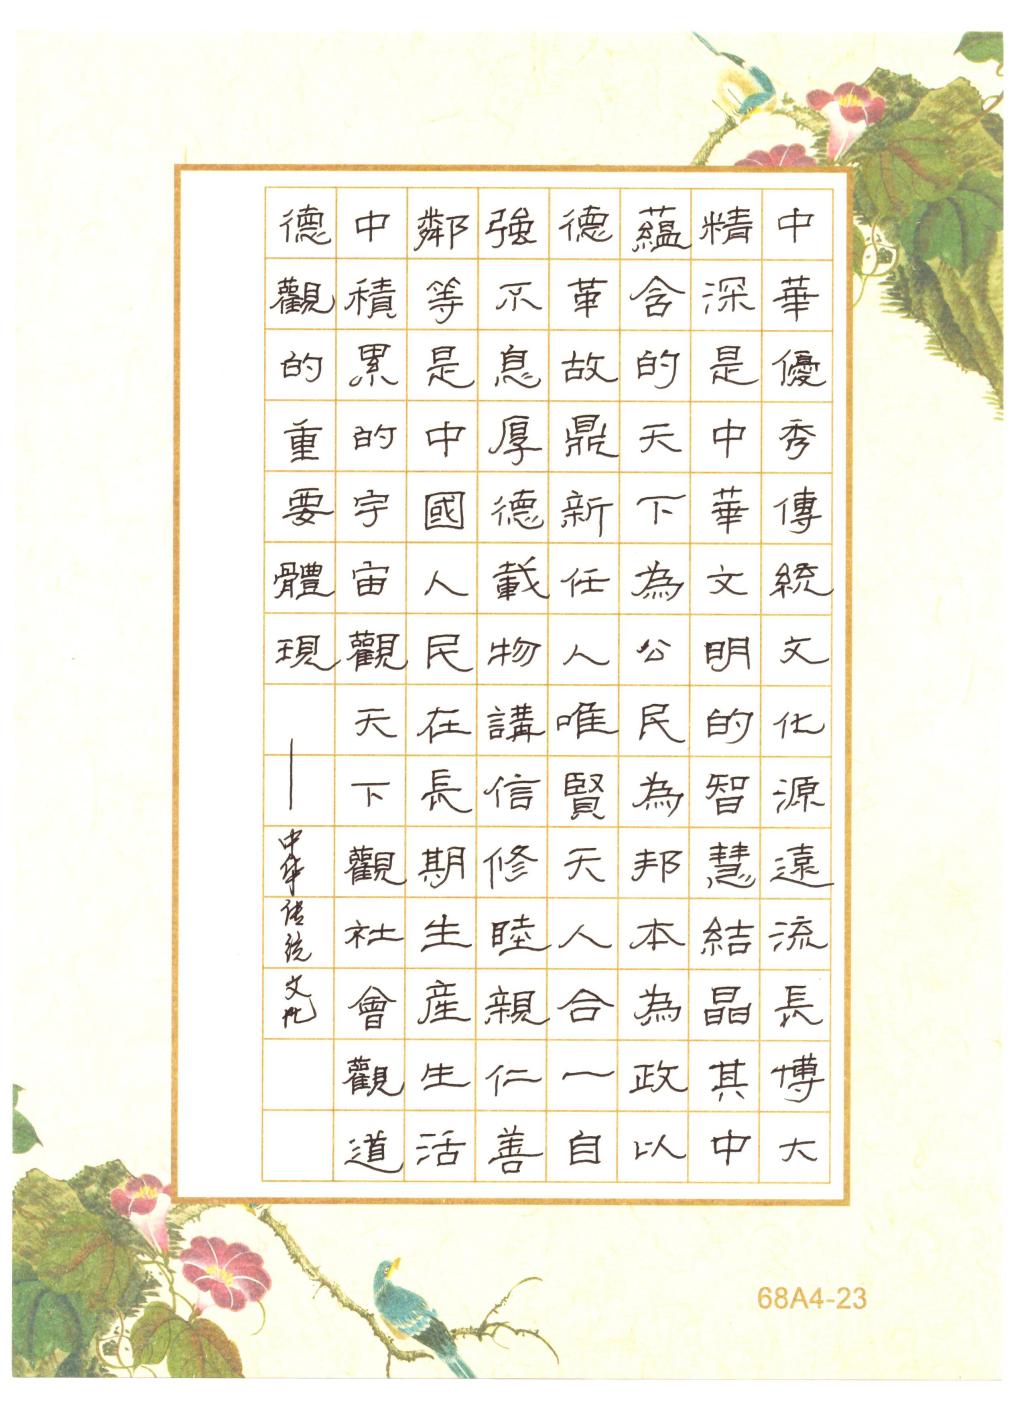 中華優秀傳統文化源遠流長博大
精深是中華文明的智慧結晶其中
蘊含的天下為公民為邦本為政以
德革故鼎新任人唯賢天人合一自
強不息厚德載物講信修睦親仁善
鄰等是中國人民在長期生産生活
中積累的宇宙觀天下觀社會觀道
德觀的重要體現——中华传统文化
68A4-23